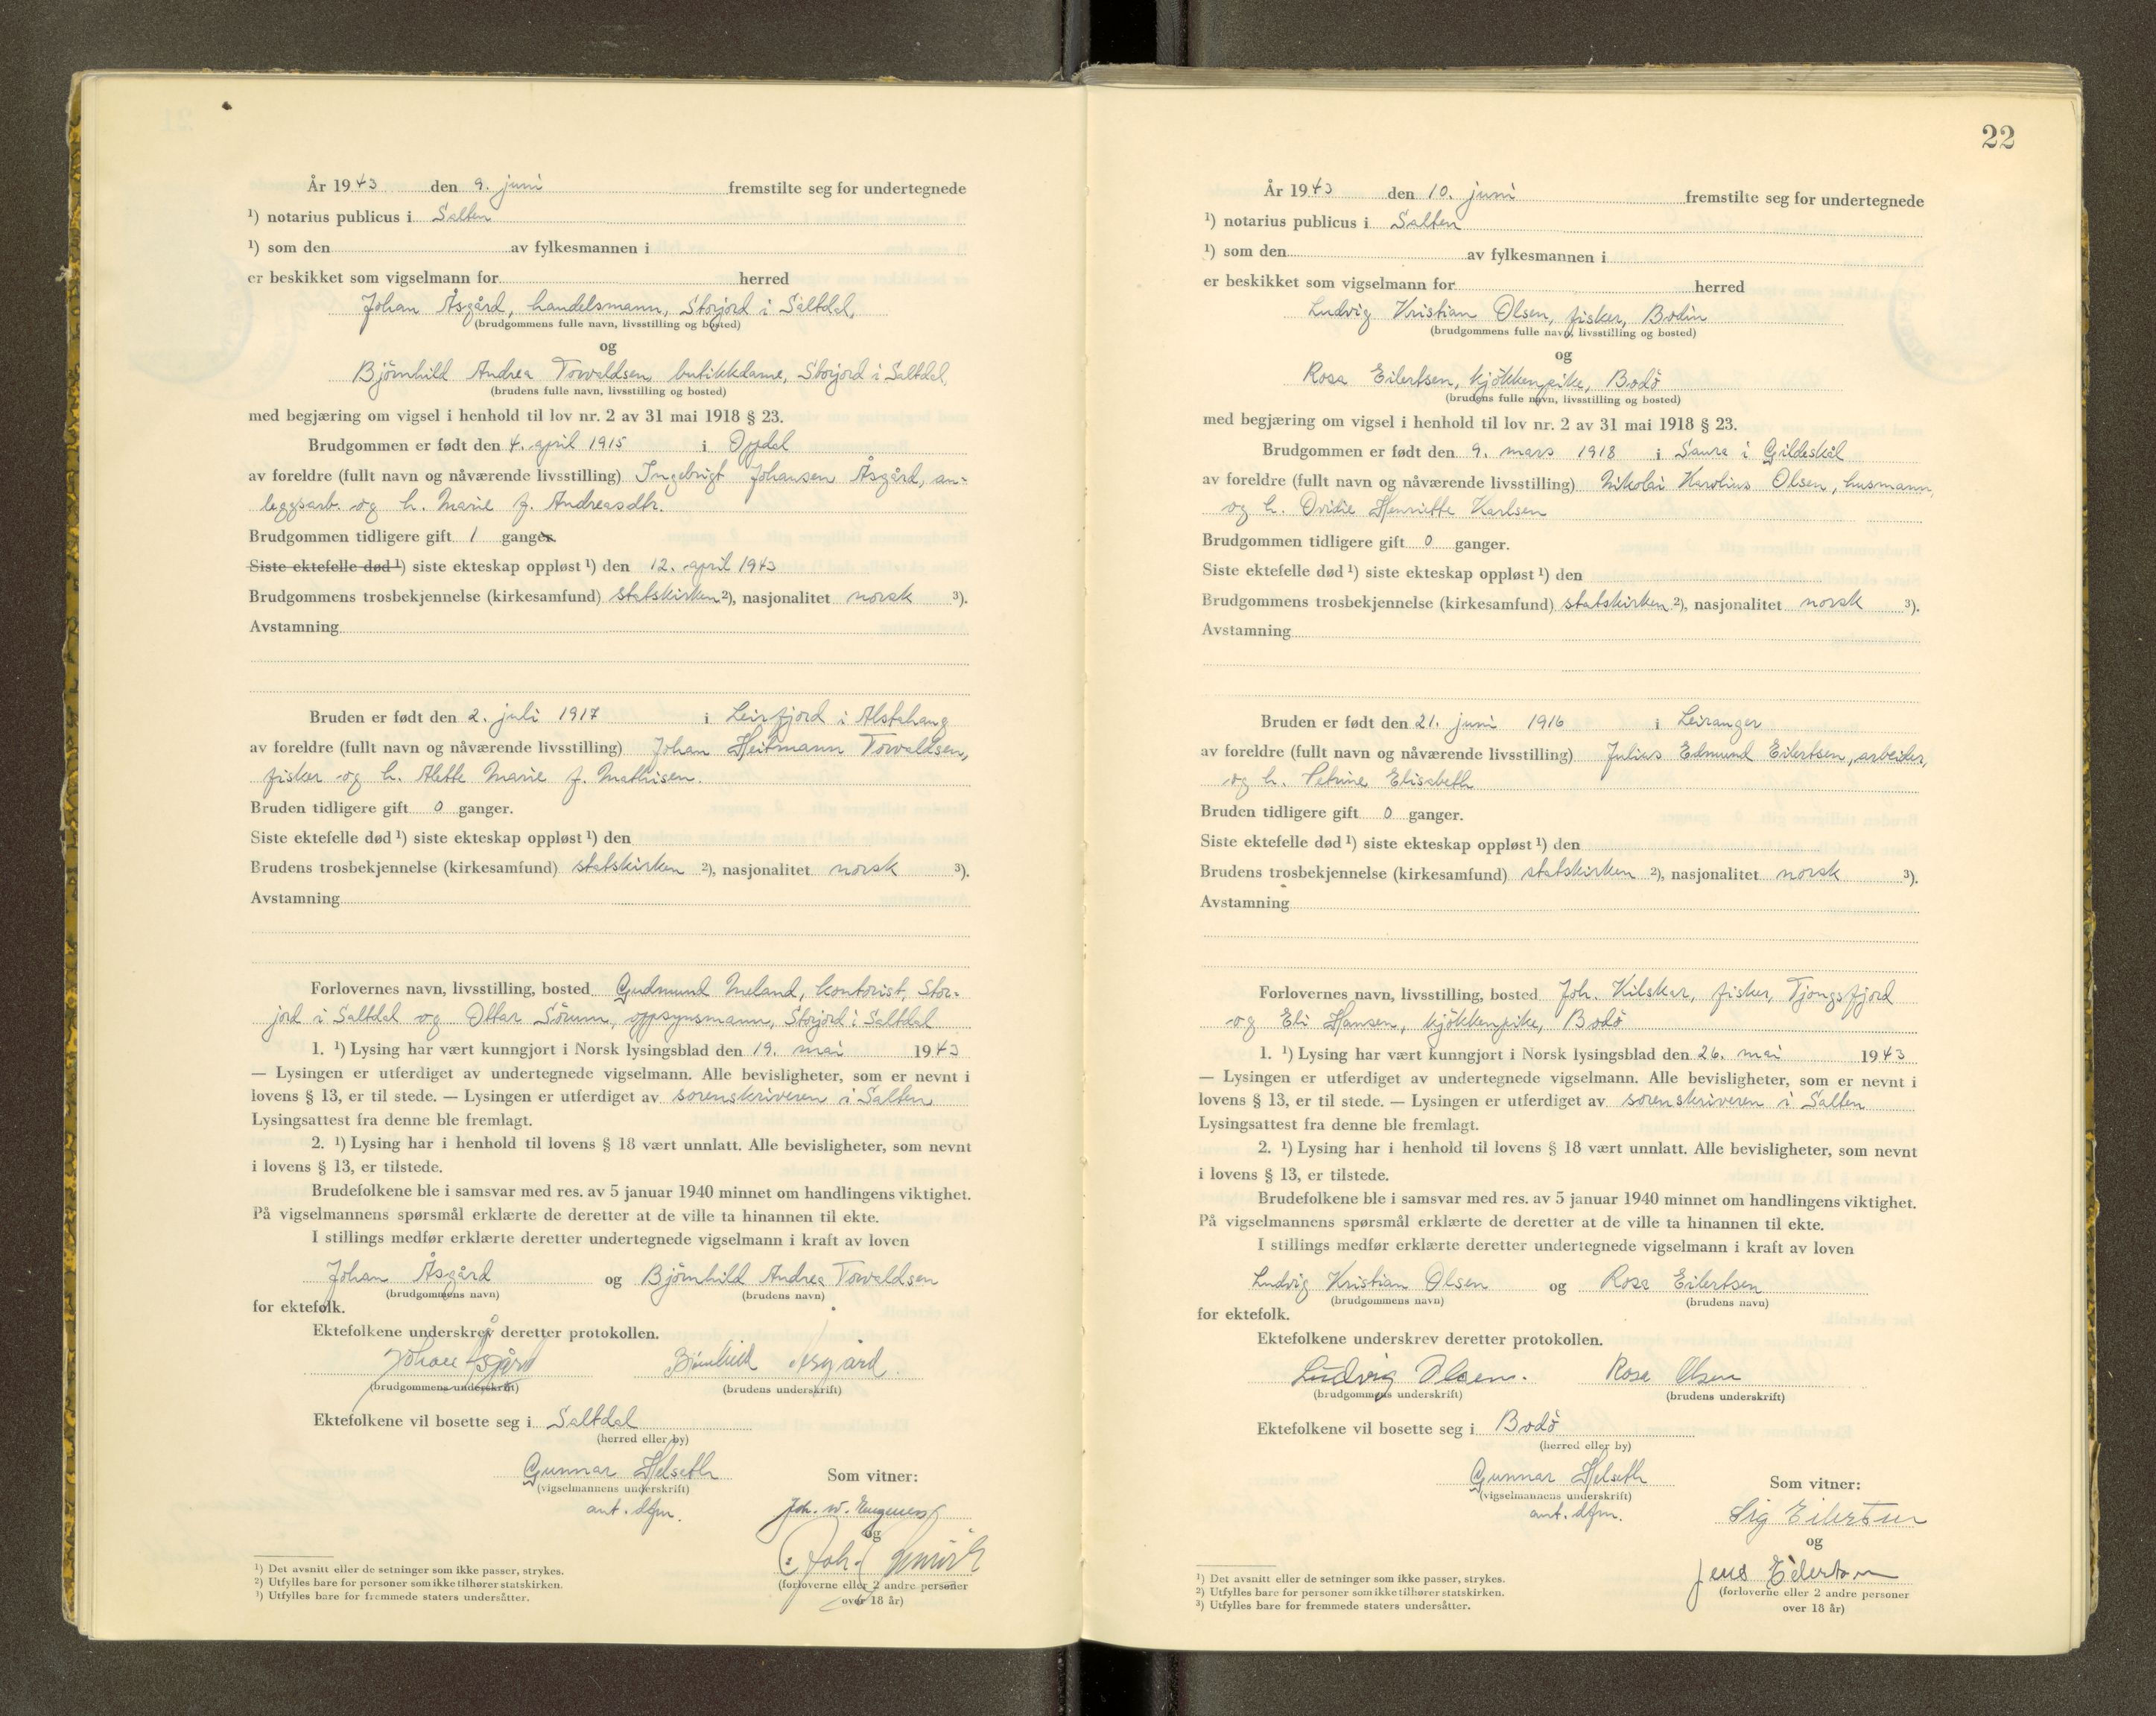 År 1943 den 9. juni fremstilte seg for undertegnede
¹) notarius publicus i Salten
¹) som den av fylkesmannen i
er beskikket som vigselmann for herred
Johan Åsgård, handelsmann, Storjord i Saltdal,
(brudgommens fulle navn, livsstilling og bosted)
og
Bjørnhild Andrea Torvaldsen butikkdame, Storjord i Saltdal,
(brudens fulle navn, livsstilling og bosted)
med begjæring om vigsel i henhold til lov nr. 2 av 31 mai 1918 § 23.
Brudgommen er født den 4. april 1915 i Oppdal
av foreldre (fullt navn og nåværende livsstilling) Ingebrigt Johansen Åsgård, an-
leggsarb. og h. Marie f. Andreasdtr.
Brudgommen tidligere gift 1 ganger.
Siste ektefelle død ¹) siste ekteskap oppløst ¹) den 12. april 1943
Brudgommens trosbekjennelse (kirkesamfund) statskirken ²), nasjonalitet norsk ³).
Avstamning
Bruden er født den 2. juli 1917 i Leirfjord i Alstahaug
av foreldre (fullt navn og nåværende livsstilling) Johan Heitmann Torvaldsen,
fisker og h. Alette Marie f. Mathisen.
Bruden tidligere gift 0 ganger.
Siste ektefelle død ¹) siste ekteskap oppløst ¹) den
Brudens trosbekjennelse (kirkesamfund) statskirken ²), nasjonalitet norsk ³).
Avstamning
Forlovernes navn, livsstilling, bosted Gudmund Meland, kontorist, Stor-
jord i Saltdal og Ottar Sörum, oppsynsmann, Storjord i Saltdal
1. ¹) Lysing har vært kunngjort i Norsk lysingsblad den 19. mai 1943
— Lysingen er utferdiget av undertegnede vigselmann. Alle bevisligheter, som er nevnt i
lovens § 13, er til stede. — Lysingen er utferdiget av sorenskriveren i Salten
Lysingsattest fra denne ble fremlagt.
2. ¹) Lysing har i henhold til lovens § 18 vært unnlatt. Alle bevisligheter, som nevnt
i lovens § 13, er tilstede.
Brudefolkene ble i samsvar med res. av 5 januar 1940 minnet om handlingens viktighet.
På vigselmannens spørsmål erklærte de deretter at de ville ta hinannen til ekte.
I stillings medfør erklærte deretter undertegnede vigselmann i kraft av loven
Johan Åsgård og Bjørnhild Andrea Torvaldsen
(brudgommens navn) (brudens navn)
for ektefolk.
Ektefolkene underskrev deretter protokollen.
Johan Åsgård Bjørnhild Åsgård.
(brudgommens underskrift) (brudens underskrift)
Ektefolkene vil bosette seg i Saltdal
(herred eller by)
Gunnar Helseth
(vigselmannens underskrift)
aut. dfm.
Som vitner:
Joh.
og
Joh.
(forloverne eller 2 andre personer
over 18 år)
¹) Det avsnitt eller de setninger som ikke passer, strykes.
²) Utfylles bare for personer som ikke tilhører statskirken.
³) Utfylles bare for fremmede staters undersåtter.
22
År 1943 den 10. juni fremstilte seg for undertegnede
¹) notarius publicus i Salten
¹) som den av fylkesmannen i
er beskikket som vigselmann for herred
Ludvig Kristian Olsen, fisker, Bodin
(brudgommens fulle navn, livsstilling og bosted)
og
Rosa Eilertsen, kjökkenpike, Bodö
(brudens fulle navn, livsstilling og bosted)
med begjæring om vigsel i henhold til lov nr. 2 av 31 mai 1918 § 23.
Brudgommen er født den 9. mars 1918 i Saura i Gildeskål
av foreldre (fullt navn og nåværende livsstilling) Nikolai Karolius Olsen, husmann,
og h. Ovidie Henriette Karlsen
Brudgommen tidligere gift 0 ganger.
Siste ektefelle død ¹) siste ekteskap oppløst ¹) den
Brudgommens trosbekjennelse (kirkesamfund) statskirken ²), nasjonalitet norsk ³).
Avstamning
Bruden er født den 21. juni 1916 i Leiranger
av foreldre (fullt navn og nåværende livsstilling) Julius Edmund Eilertsen, arbeider,
og h. Petrine Elisabeth
Bruden tidligere gift 0 ganger.
Siste ektefelle død ¹) siste ekteskap oppløst ¹) den
Brudens trosbekjennelse (kirkesamfund) statskirken ²), nasjonalitet norsk ³).
Avstamning
Forlovernes navn, livsstilling, bosted Joh. Kilskar, fisker, Tjongsfjord
og Eli Hansen, kjökkenpike, Bodö
1. ¹) Lysing har vært kunngjort i Norsk lysingsblad den 26. mai 1943
— Lysingen er utferdiget av undertegnede vigselmann. Alle bevisligheter, som er nevnt i
lovens § 13, er til stede. — Lysingen er utferdiget av sorenskriveren i Salten
Lysingsattest fra denne ble fremlagt.
2. ¹) Lysing har i henhold til lovens § 18 vært unnlatt. Alle bevisligheter, som nevnt
i lovens § 13, er tilstede.
Brudefolkene ble i samsvar med res. av 5 januar 1940 minnet om handlingens viktighet.
På vigselmannens spørsmål erklærte de deretter at de ville ta hinannen til ekte.
I stillings medfør erklærte deretter undertegnede vigselmann i kraft av loven
Ludvig Kristian Olsen og Rosa Eilertsen
(brudgommens navn) (brudens navn)
for ektefolk.
Ektefolkene underskrev deretter protokollen.
Ludvig Olsen. Rosa Olsen
(brudgommens underskrift) (brudens underskrift)
Ektefolkene vil bosette seg i Bodö
(herred eller by)
Gunnar Helseth
(vigselmannens underskrift)
aut. dfm.
Som vitner:
Sig Eilertsen
og
Jens Eilertsen
(forloverne eller 2 andre personer
over 18 år)
¹) Det avsnitt eller de setninger som ikke passer, strykes.
²) Utfylles bare for personer som ikke tilhører statskirken.
³) Utfylles bare for fremmede staters undersåtter.